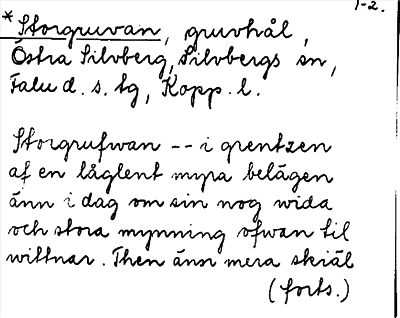 1-2.
* Storgruvan, gruvhål,
Östra Silvberg, Silvbergs sn,
Falu d. s. tg, Kopp. l.
Storgrufwan -- i grentzen
af en låglent myra belägen
änn i dag om sin nog wida
och stora mynning ofwan til
wittnar. Then änn mera skiäl
(forts.)